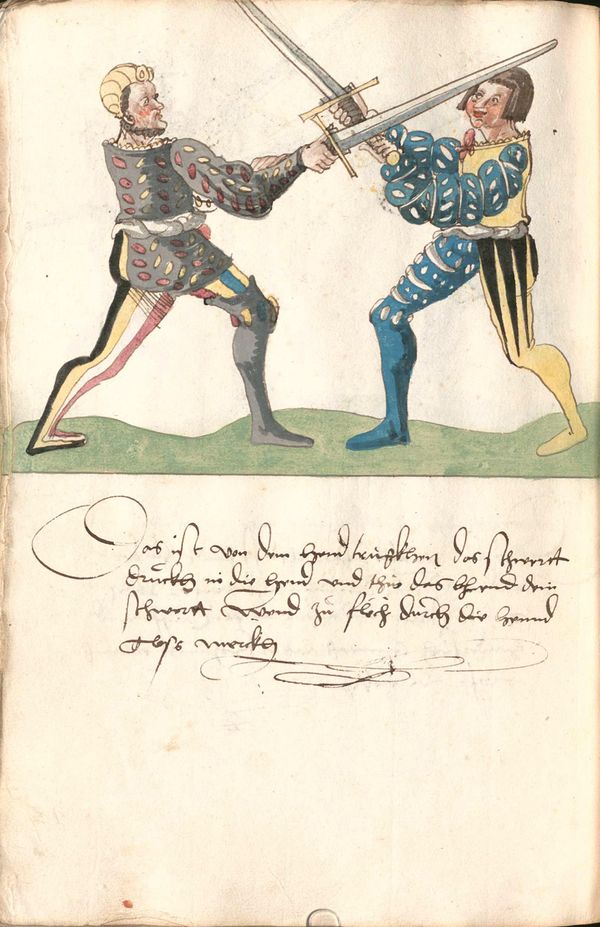 Das ist von dem hend truckhen das schwertt
druckh in die hend vnd thu das behend dein
schwertt wend zu flech durch die hennd
des merckh